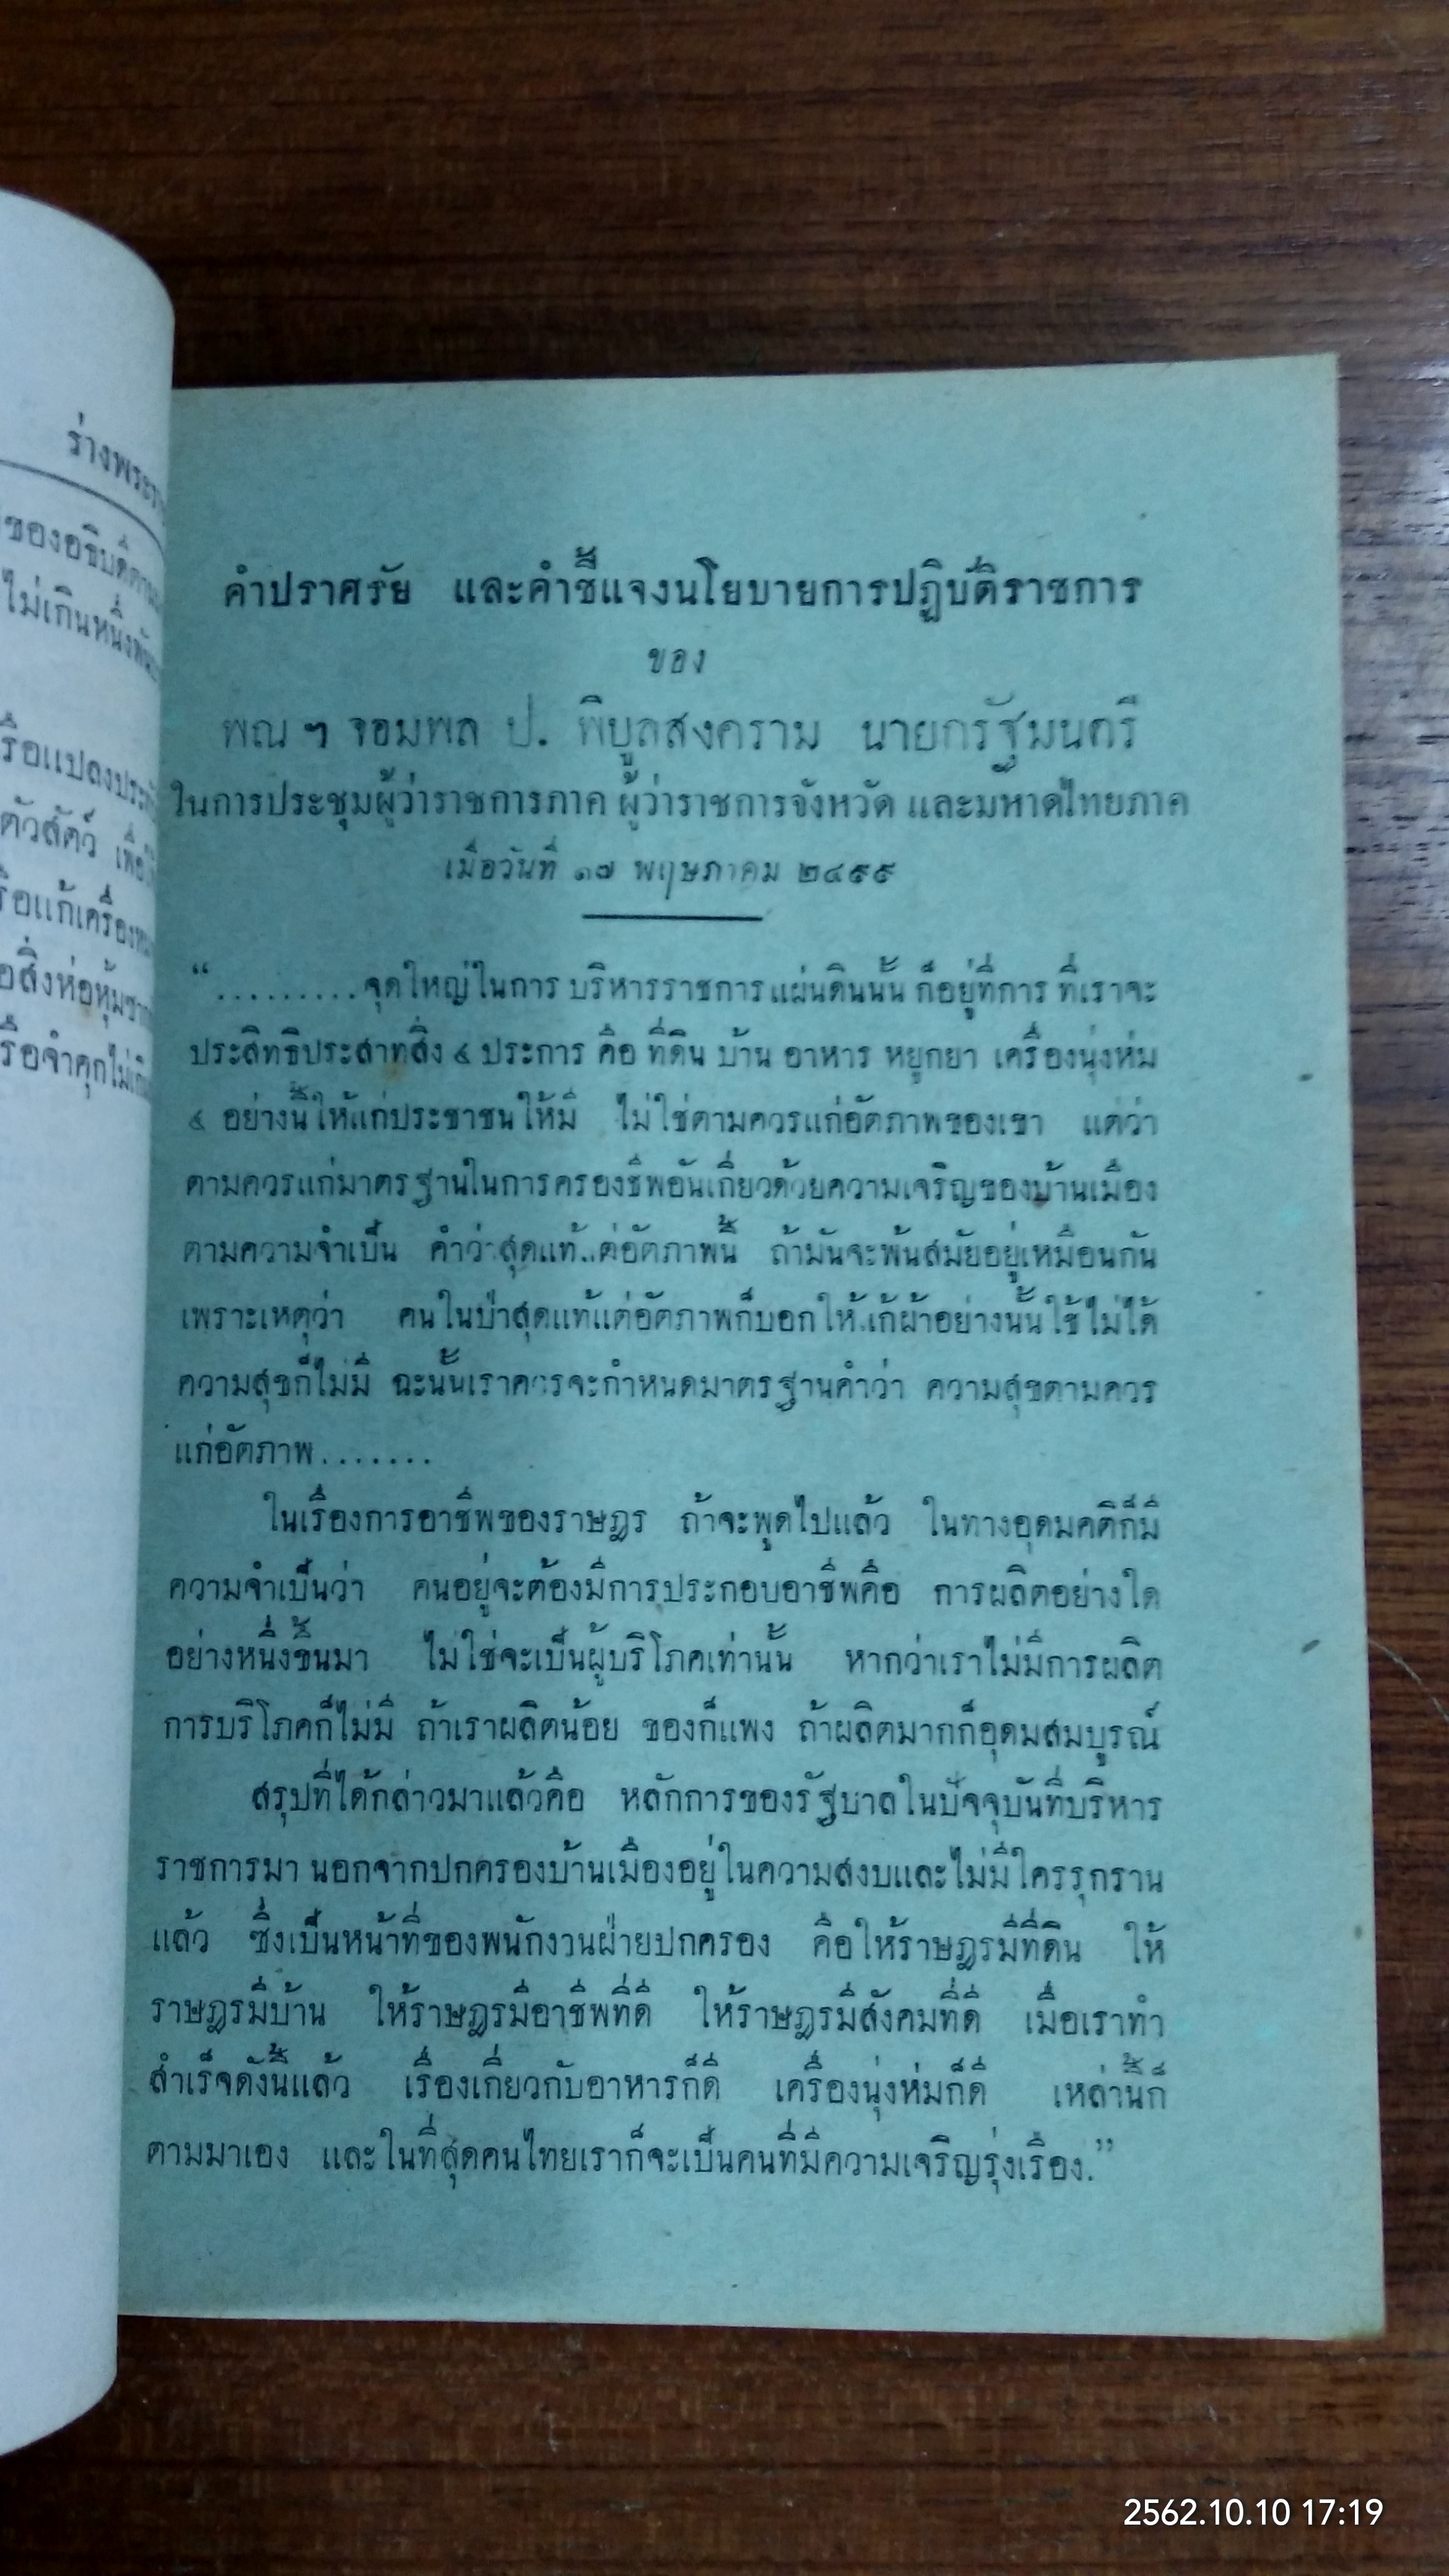 ร่างพระรา
ของอธิบดีตาม
ไม่เกินหนึ่งพัน
รือแปลงประทับ
ตัวสัตว์ เพื่อให้
รือแก้เครื่องหมาย
อสิ่งห่อหุ้มซาก
รือจำคุกไม่เกิน
คำปราศรัย และคำชี้แจงนโยบายการปฏิบัติราชการ
ของ
พณ ฯ จอมพล ป. พิบูลสงคราม นายกรัฐมนตรี
ในการประชุมผู้ว่าราชการภาค ผู้ว่าราชการจังหวัด และมหาดไทยภาค
เมื่อวันที่ ๑๗ พฤษภาคม ๒๔๙๙
“.........จุดใหญ่ในการ บริหารราชการแผ่นดินนั้น ก็อยู่ที่การ ที่เราจะ
ประสิทธิประสาทสิ่ง ๕ ประการ คือ ที่ดิน บ้าน อาหาร หยูกยา เครื่องนุ่งห่ม
๕ อย่างนี้ให้แก่ประชาชนให้มี ไม่ใช่ตามควรแก่อัตภาพของเขา แต่ว่า
ตามควรแก่มาตรฐานในการครองชีพอันเกี่ยวด้วยความเจริญของบ้านเมือง
ตามความจำเป็น คำว่าสุดแท้..ต่อัตภาพนี้ ถ้ามันจะพ้นสมัยอยู่เหมือนกัน
เพราะเหตุว่า คนในป่าสุดแท้แต่อัตภาพก็บอกให้.เก้ผ้าอย่างนั้นใช้ไม่ได้
ความสุขก็ไม่มี ฉะนั้นเราควรจะกำหนดมาตรฐานคำว่า ความสุขตามควร
แก่อัตภาพ.......
ในเรื่องการอาชีพของราษฎร ถ้าจะพูดไปแล้ว ในทางอุดมคติก็มี
ความจำเป็นว่า คนอยู่จะต้องมีการประกอบอาชีพคือ การผลิตอย่างใด
อย่างหนึ่งขึ้นมา ไม่ใช่จะเป็นผู้บริโภคเท่านั้น หากว่าเราไม่มีการผลิต
การบริโภคก็ไม่มี ถ้าเราผลิตน้อย ของก็แพง ถ้าผลิตมากก็อุดมสมบูรณ์
สรุปที่ได้กล่าวมาแล้วคือ หลักการของรัฐบาลในปัจจุบันที่บริหาร
ราชการมา นอกจากปกครองบ้านเมืองอยู่ในความสงบและไม่มีใครรุกราน
แล้ว ซึ่งเป็นหน้าที่ของพนักงานฝ่ายปกครอง คือให้ราษฎรมีที่ดิน ให้
ราษฎรมีบ้าน ให้ราษฎรมีอาชีพที่ดี ให้ราษฎรมีสังคมที่ดี เมื่อเราทำ
สำเร็จดังนี้แล้ว เรื่องเกี่ยวกับอาหารก็ดี เครื่องนุ่งห่มก็ดี เหล่านี้ก็
ตามมาเอง และในที่สุดคนไทยเราก็จะเป็นคนที่มีความเจริญรุ่งเรือง.”
2562.10.10 17:19